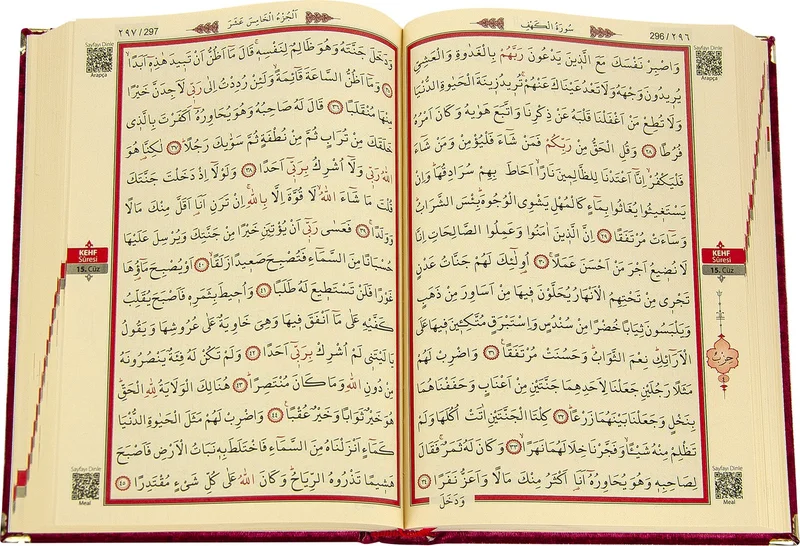 سُورَةُ الْكَهْفِ
296 / ٢٩٦
Sayfayı Dinle
Arapça
وَاصْبِرْ نَفْسَكَ مَعَ الَّذ۪ينَ يَدْعُونَ رَبَّهُمْ بِالْغَدٰوةِ وَالْعَشِيِّ
يُر۪يدُونَ وَجْهَهُ وَلَا تَعْدُ عَيْنَاكَ عَنْهُمْ تُر۪يدُ ز۪ينَةَ الْحَيٰوةِ الدُّنْيَا
وَلَا تُطِعْ مَنْ اَغْفَلْنَا قَلْبَهُ عَنْ ذِكْرِنَا وَاتَّبَعَ هَوٰيهُ وَكَانَ اَمْرُهُ
فُرُطًا ٢٨ وَقُلِ الْحَقُّ مِنْ رَبِّكُمْ فَمَنْ شَٓاءَ فَلْيُؤْمِنْ وَمَنْ شَٓاءَ
فَلْيَكْفُرْ اِنَّٓا اَعْتَدْنَا لِلظَّالِم۪ينَ نَارًا اَحَاطَ بِهِمْ سُرَادِقُهَا وَاِنْ
يَسْتَغ۪يثُوا يُغَاثُوا بِمَٓاءٍ كَالْمُهْلِ يَشْوِي الْوُجُوهَ بِئْسَ الشَّرَابُ
وَسَٓاءَتْ مُرْتَفَقًا ٢٩ اِنَّ الَّذ۪ينَ اٰمَنُوا وَعَمِلُوا الصَّالِحَاتِ اِنَّا
لَا نُض۪يعُ اَجْرَ مَنْ اَحْسَنَ عَمَلًا ٣٠ اُو۬لٰٓئِكَ لَهُمْ جَنَّاتُ عَدْنٍ
تَجْر۪ي مِنْ تَحْتِهِمُ الْاَنْهَارُ يُحَلَّوْنَ ف۪يهَا مِنْ اَسَاوِرَ مِنْ ذَهَبٍ
وَيَلْبَسُونَ ثِيَابًا خُضْرًا مِنْ سُنْدُسٍ وَاِسْتَبْرَقٍ مُتَّكِـ۪ٔينَ ف۪يهَا عَلَى
الْاَرَٓائِكِ نِعْمَ الثَّوَابُ وَحَسُنَتْ مُرْتَفَقًا ٣١ وَاضْرِبْ لَهُمْ
مَثَلًا رَجُلَيْنِ جَعَلْنَا لِاَحَدِهِمَا جَنَّتَيْنِ مِنْ اَعْنَابٍ وَحَفَفْنَاهُمَا
بِنَخْلٍ وَجَعَلْنَا بَيْنَهُمَا زَرْعًا ٣٢ كِلْتَا الْجَنَّتَيْنِ اٰتَتْ اُكُلَهَا وَلَمْ
تَظْلِمْ مِنْهُ شَيْـًٔا وَفَجَّرْنَا خِلَالَهُمَا نَهَرًا ٣٣ وَكَانَ لَهُ ثَمَرٌ فَقَالَ
لِصَاحِبِه۪ وَهُوَ يُحَاوِرُهُٓ اَنَا۬ اَكْثَرُ مِنْكَ مَالًا وَاَعَزُّ نَفَرًا ٣٤
وَدَخَلَ
KEHF
Sûresi
15. Cüz
حزب
Sayfayı Dinle
Meal
اَلْجُزْءُ الْخَامِسَ عَشَرَ
٢٩٧ / 297
Sayfayı Dinle
Arapça
وَدَخَلَ جَنَّتَهُ وَهُوَ ظَالِمٌ لِنَفْسِه۪ قَالَ مَٓا اَظُنُّ اَنْ تَب۪يدَ هٰذِه۪ٓ اَبَدًا
٣٥ وَمَٓا اَظُنُّ السَّاعَةَ قَٓائِمَةً وَلَئِنْ رُدِدْتُ اِلٰى رَبّ۪ي لَاَجِدَنَّ خَيْرًا
مِنْهَا مُنْقَلَبًا ٣٦ قَالَ لَهُ صَاحِبُهُ وَهُوَ يُحَاوِرُهُٓ اَكَفَرْتَ بِالَّذ۪ي
خَلَقَكَ مِنْ تُرَابٍ ثُمَّ مِنْ نُطْفَةٍ ثُمَّ سَوّٰيكَ رَجُلًا ٣٧ لٰكِنَّا۬ هُوَ
اللّٰهُ رَبّ۪ي وَلَٓا اُشْرِكُ بِرَبّ۪ٓي اَحَدًا ٣٨ وَلَوْلَٓا اِذْ دَخَلْتَ جَنَّتَكَ
قُلْتَ مَا شَٓاءَ اللّٰهُ لَا قُوَّةَ اِلَّا بِاللّٰهِ اِنْ تَرَنِ اَنَا۬ اَقَلَّ مِنْكَ مَالًا
وَوَلَدًا ٣٩ فَعَسٰى رَبّ۪ٓي اَنْ يُؤْتِيَنِ خَيْرًا مِنْ جَنَّتِكَ وَيُرْسِلَ عَلَيْهَا
حُسْبَانًا مِنَ السَّمَٓاءِ فَتُصْبِحَ صَع۪يدًا زَلَقًا ٤٠ اَوْ يُصْبِحَ مَٓاؤُ۬هَا
غَوْرًا فَلَنْ تَسْتَط۪يعَ لَهُ طَلَبًا ٤١ وَاُح۪يطَ بِثَمَرِه۪ فَاَصْبَحَ يُقَلِّبُ
كَفَّيْهِ عَلٰى مَٓا اَنْفَقَ ف۪يهَا وَهِيَ خَاوِيَةٌ عَلٰى عُرُوشِهَا وَيَقُولُ
يَا لَيْتَن۪ي لَمْ اُشْرِكْ بِرَبّ۪ٓي اَحَدًا ٤٢ وَلَمْ تَكُنْ لَهُ فِئَةٌ يَنْصُرُونَهُ
مِنْ دُونِ اللّٰهِ وَمَا كَانَ مُنْتَصِرًا ٤٣ هُنَالِكَ الْوَلَايَةُ لِلّٰهِ الْحَقِّ
هُوَ خَيْرٌ ثَوَابًا وَخَيْرٌ عُقْبًا ٤٤ وَاضْرِبْ لَهُمْ مَثَلَ الْحَيٰوةِ الدُّنْيَا
كَمَٓاءٍ اَنْزَلْنَاهُ مِنَ السَّمَٓاءِ فَاخْتَلَطَ بِه۪ نَبَاتُ الْاَرْضِ فَاَصْبَحَ
هَش۪يمًا تَذْرُوهُ الرِّيَاحُ وَكَانَ اللّٰهُ عَلٰى كُلِّ شَيْءٍ مُقْتَدِرًا ٤٥
KEHF
Sûresi
15. Cüz
Sayfayı Dinle
Meal